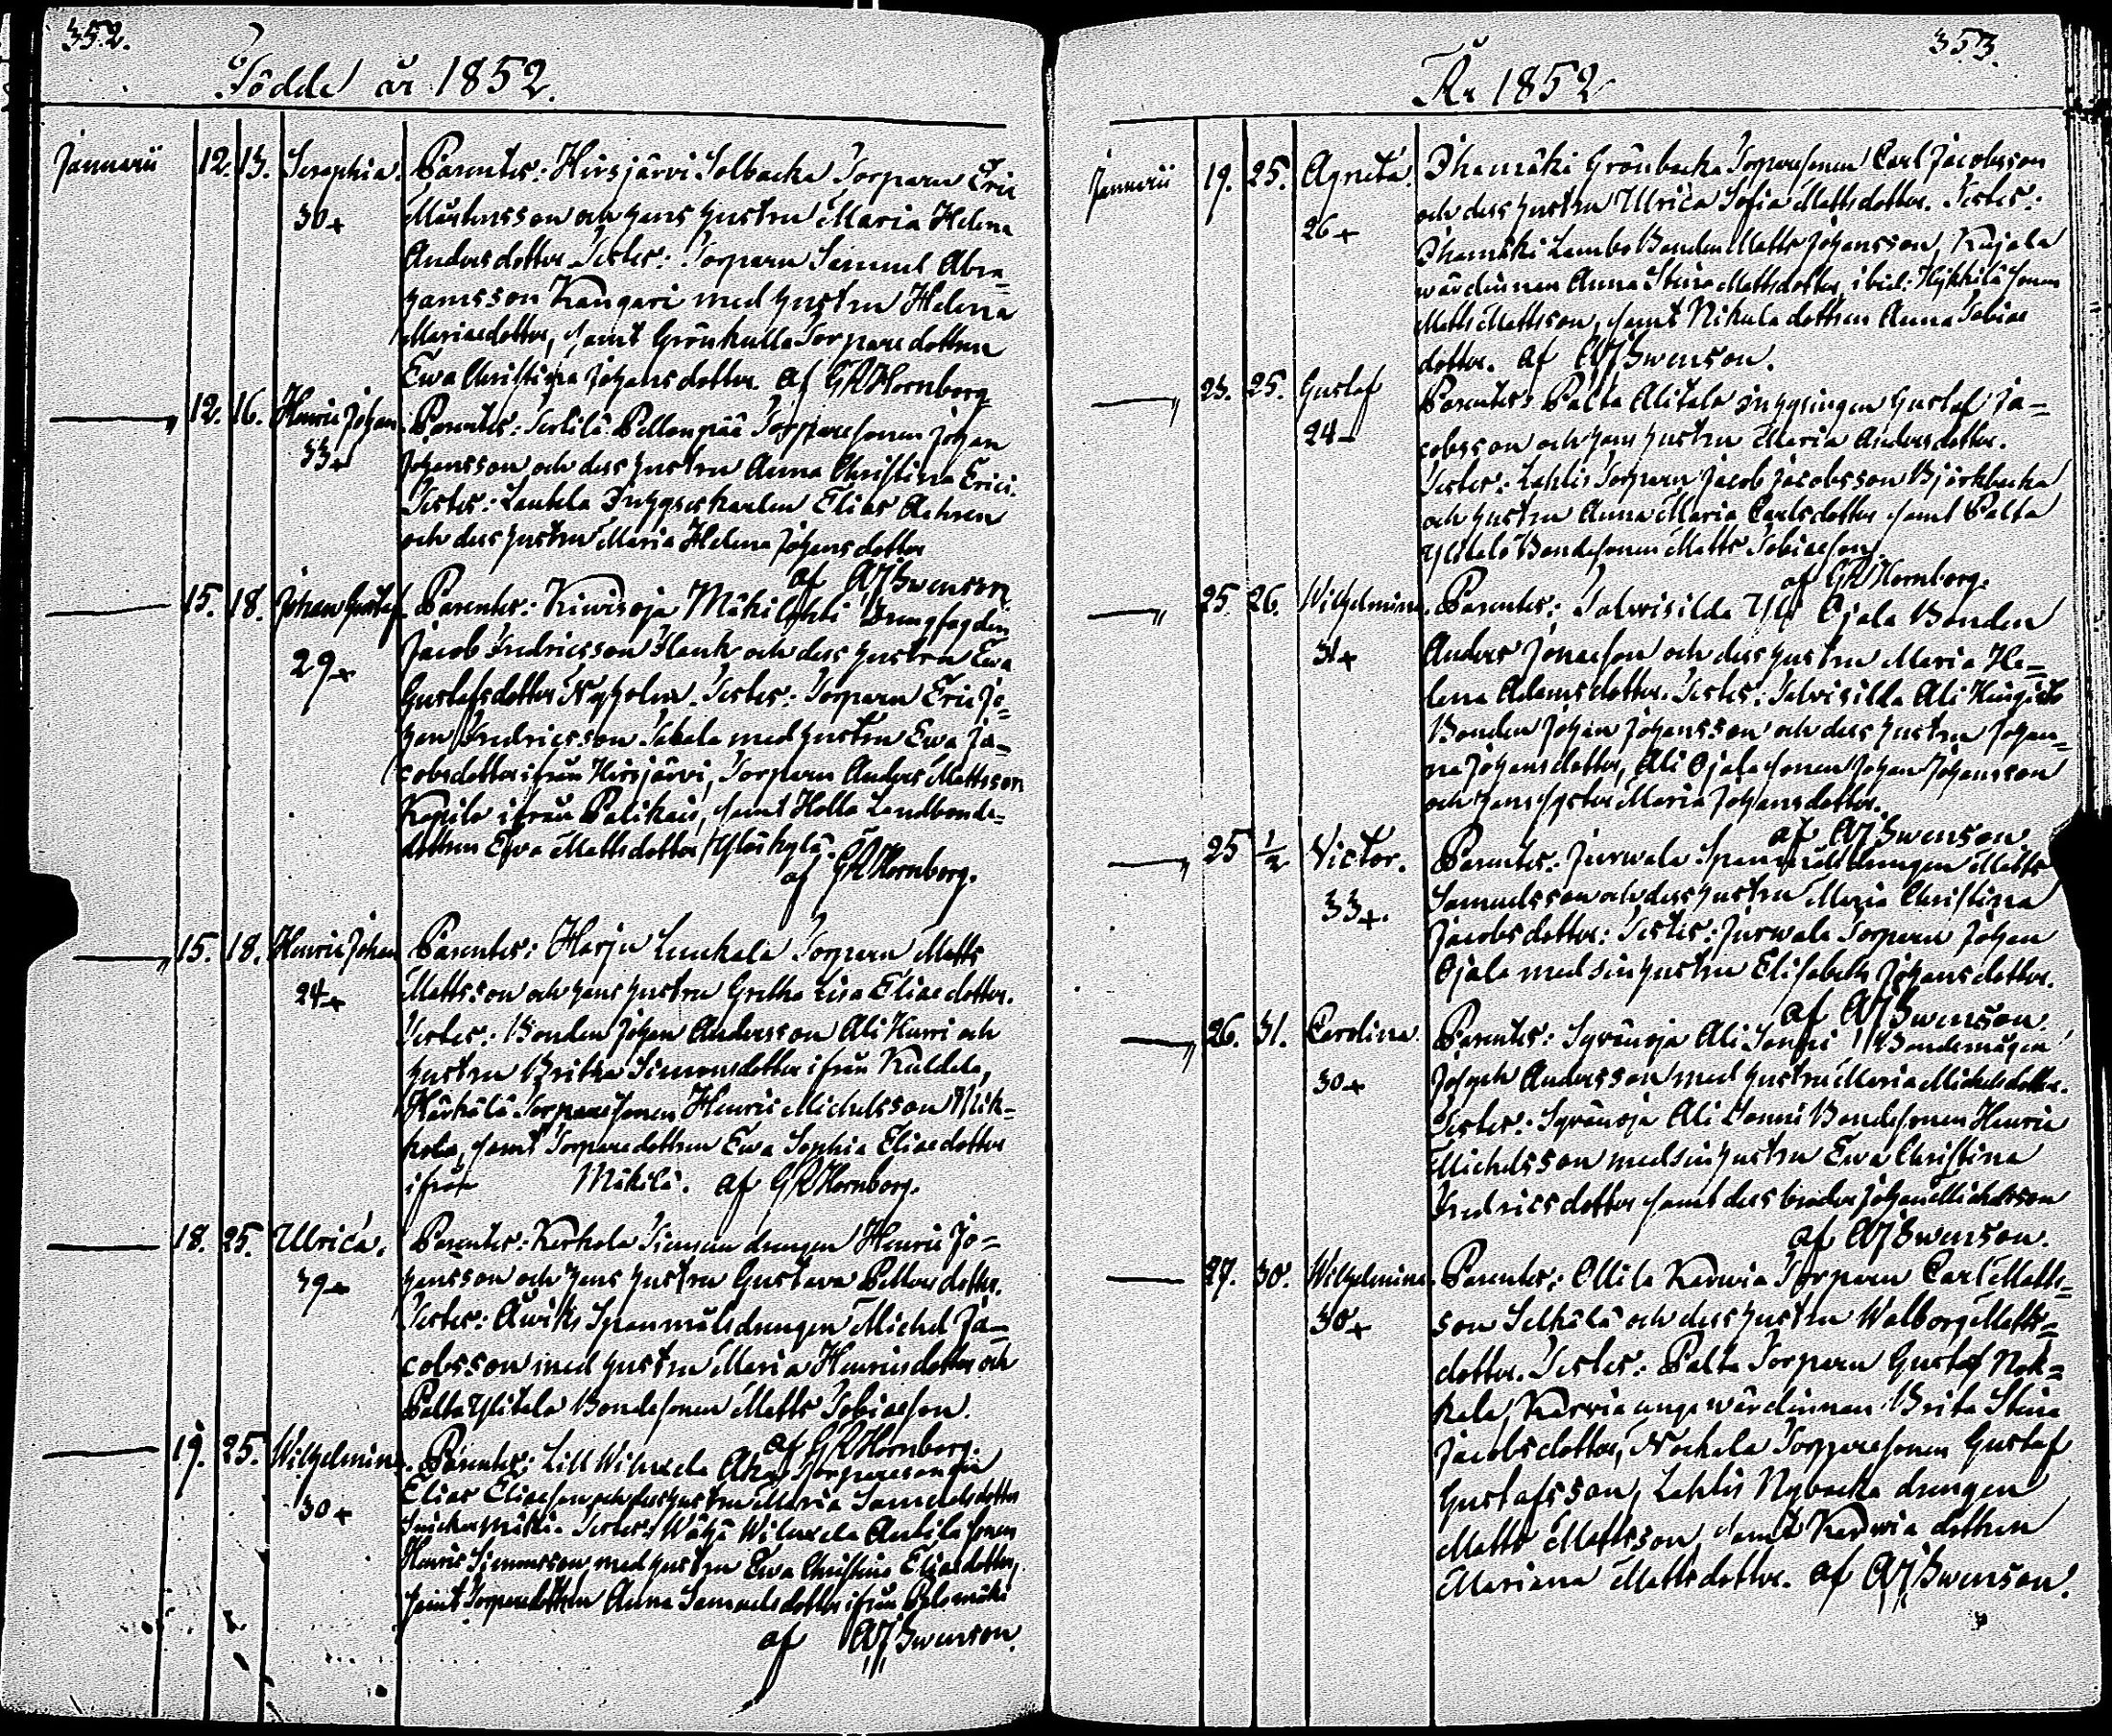 352.
Födde år 1852.
Januarii 12. 13. Seraphia. Parentes: Hirsjärvi Solbacka Torparen Eric
30+ Mårtensson och hans hustru Maria Helena
Andersdotter. Testes: Torparen Samuel Abra-
hamsson Kangari med hustru Helena
Mariaedotter, samt Grönkulla Torparedottren
Ewa Christina Johansdotter. af GRHornberg
12. 16. Henric Johan. Parentes: Terttilä Pellonpää Torparesonen Johan
33+ Johansson och dess hustru Anna Christina Erici.
Testes: Lautela Inhyseskarlen Elias
och dess hustru Maria Helena Johansdotter
af AJSwenson.
15. 18. Johan Gustaf. Parentes: Kiwisoja Mäkilähti Drengfogden
29+ Jacob Fredricsson Flank och dess hustru Ewa
Gustafsdotter Nyholm. Testes: Torparen Eric Jo-
han Fredricsson med hustru Ewa Ja-
cobsdotter ifrån Hirsjärvi, Torparen Anders Mattsson
ifrån Palikais, samt Holla Landbonde-
dottren Ewa Mattsdotter
af GRHornberg.
15. 18. Henric Johan Parentes: Harju Torparen Matts
24+ Mattsson och hans hustru Gretha Lisa Eliaedotter.
Testes: Bonden Johan Andersson Ali Kurri och
hustru Britha Simonsdotter ifrån Kaldela,
Härkälä Torparesonen Henric Michelsson Nik-
kola, samt Torparedottren Ewa Sophia Eliaedotter
ifrån Mäkilä. af GRHornberg.
18. 25. Ulrica. Parentes: Kerkola drengen Henric Jo-
39+ hansson och hans hustru Gustava Pettersdotter.
Testes: Åwiks Spanmålsdrengen Michel Ja-
cobsson med hustru Maria Henricsdotter och
Palta Ylitalo Bondesonen Matts Tobiaeson.
af GRHornberg.
19. 25. Wilhelmina. Parentes: Lill Torparesonen
30+ Elias Eliaeson och dess hustru Maria Samuelsdotter
Testes: Anttila sonen
Henric Simonsson med hustru Ewa Christina Eliaedotter,
samt Torparedottren Anna Samuelsdotter ifrån Palomäki
af AJSwenson.
353.
År 1852
Januarii 19. 25. Agneta. Ihamäki Grönbacka Torparesonen Carl Jacobsson
26+ och dess hustru Ulrica Sofia Mattsdotter. Testes:
Ihamäki Lambo Bonden Matts Johansson, Kujala
wärdinnan Anna Stina Mattsdotter, ibid: Hykkilä sonen
Matts Mattsson, samt Nikula dottren Anna Tobiae
dotter. af AJSwenson.
23. 25. Gustaf Parentes: Palta Alitalo Inhysingen Gustaf Ja-
24+ cobsson och hans hustru Maria Andersdotter.
Testes: Lahlis Torparen Jacob Jacobsson Björkbacka
och hustru Anna Maria Carlsdotter samt Palta
Ylitalo Bondesonen Matts Tobiaeson.
af GRHornberg.
25. 26. Wilhelmina. Parentes: Talwisilda Yli Ojala Bonden
31+ Anders Jonaeson och dess hustru Maria He-
lena Adamsdotter. Testes: Talvisilla Ali Hengisto
Bonden Johan Johansson och dess hustru Johan-
na Johansdotter, Ali Ojala sonen Johan Johansson
och hans syster Maria Johansdotter.
af AJSwenson
25 1/2 Victor. Parentes: Jurwala Spanmålsdrengen Matts
33+. Samuelsson och dess hustru Maria Christina
Jacobsdotter: Testes: Jurwala Torparen Johan
Ojala med sin hustru Elisabeth Johansdotter.
af AJSwenson.
26. 31. Carolina. Parentes: Syränoja Ali Sonni Bondemågen
30+ Joseph Andersson med hustru Maria Michelsdotter.
Testes: Syränoja Ali Sonni Bondesonen Henric
Michelsson med sin hustru Ewa Christina
Fredricsdotter samt dess broder Johan Michelsson
af AJSwenson.
27. 30. Wilhelmina. Parentes: Ollila Karwia Torparen Carl Matts-
30+ son Selkälä och dess hustru Walborg Matts-
dotter. Testes: Palta Torparen Gustaf Nok-
kala, Karvia unga wärdinnan Brita Stina
Jacobsdotter, Nockala Torparesonen Gustaf
Gustafsson, Lahlis Nybacka drengen
Matts Mattsson, samt Karwia dottren
Mariana Mattsdotter. af AJSwenson.